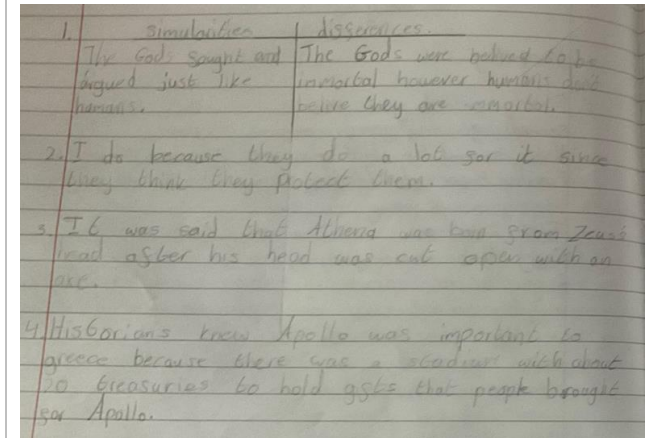 1. simularities disserences.
The Gods sought and The Gods were belived to be
argued just like inmortal however humans don't
humans. belive they are immortal.
2. I do because they do a lot sor it since
they think they protect them.
3. It was said that Athena was born srom Zeus's
head aster his head was cut open with an
axe.
4. Historians knew Apollo was important to
greece because there was a stadium with about
20 treasuries to hold gists that people brought
sor Apollo.